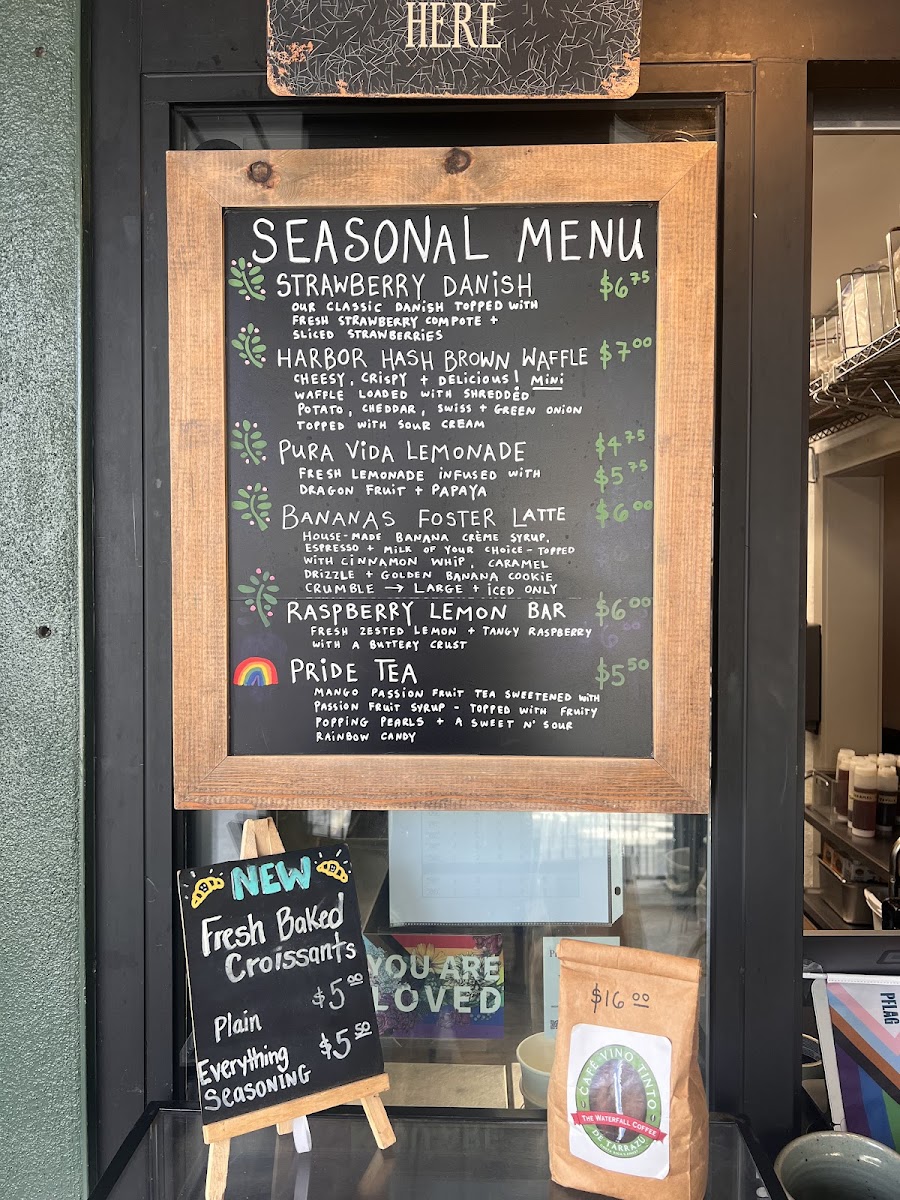 HERE
SEASONAL MENU
STRAWBERRY DANISH $6.75
OUR CLASSIC DANISH TOPPED WITH
FRESH STRAWBERRY COMPOTE +
SLICED STRAWBERRIES
HARBOR HASH BROWN WAFFLE $7.00
CHEESY, CRISPY + DELICIOUS! MINI
WAFFLE LOADED WITH SHREDDED
POTATO, CHEDDAR, SWISS + GREEN ONION
TOPPED WITH SOUR CREAM
PURA VIDA LEMONADE $4.75
FRESH LEMONADE INFUSED WITH $5.75
DRAGON FRUIT + PAPAYA
BANANAS FOSTER LATTE $6.00
HOUSE-MADE BANANA CRÈME SYRUP,
ESPRESSO + MILK OF YOUR CHOICE - TOPPED
WITH CINNAMON WHIP, CARAMEL
DRIZZLE + GOLDEN BANANA COOKIE
CRUMBLE → LARGE + ICED ONLY
RASPBERRY LEMON BAR $6.00
FRESH ZESTED LEMON + TANGY RASPBERRY
WITH A BUTTERY CRUST
PRIDE TEA $5.50
MANGO PASSION FRUIT TEA SWEETENED WITH
PASSION FRUIT SYRUP - TOPPED WITH FRUITY
POPPING PEARLS + A SWEET N' SOUR
RAINBOW CANDY
NEW
Fresh Baked
Croissants
$5.00
Plain
Everything $5.50
SEASONING
YOU ARE
LOVED
$16.00
CAFÉ VINO TINTO
THE WATERFALL COFFEE
DE TARRAZU
PFLAG